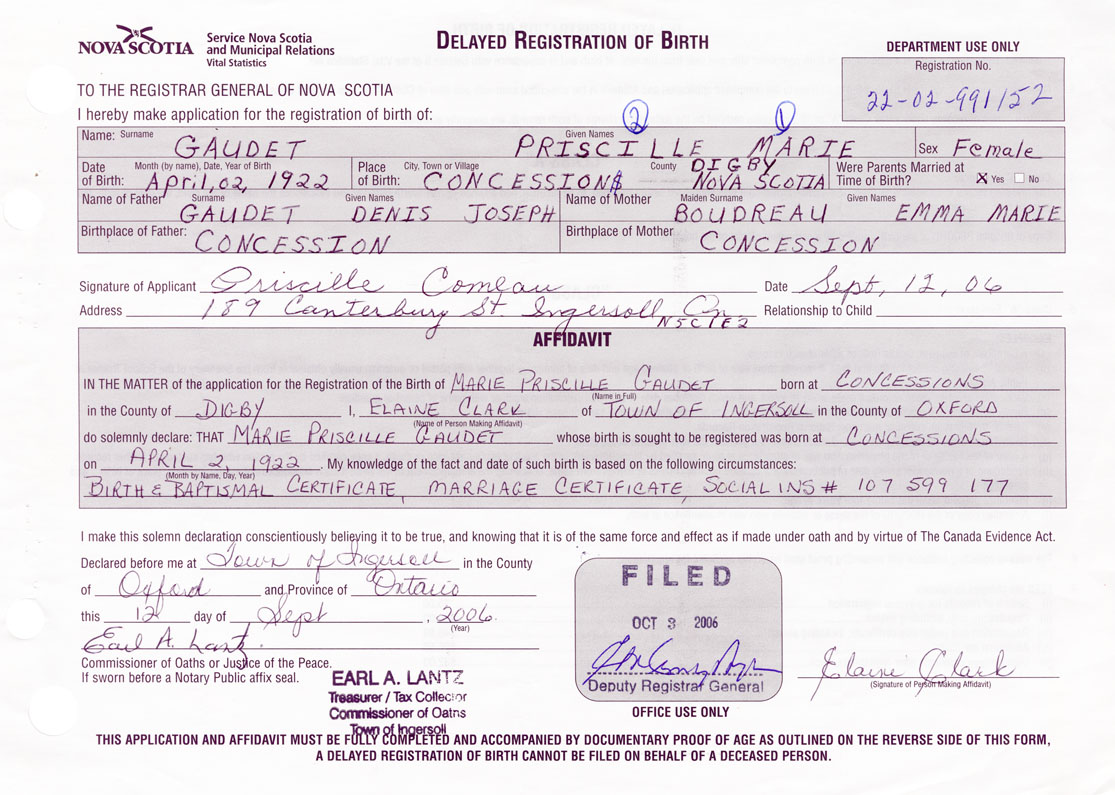 NOVA SCOTIA
Service Nova Scotia
and Municipal Relations
Vital Statistics
DELAYED REGISTRATION OF BIRTH
DEPARTMENT USE ONLY
Registration No.
22-02-991152
TO THE REGISTRAR GENERAL OF NOVA SCOTIA
I hereby make application for the registration of birth of:
2 1
Name: Surname GAUDET Given Names PRISCILLE MARIE Sex Female
Date of Birth: Month (by name), Date, Year of Birth April, 02, 1922 Place of Birth: City, Town or Village CONCESSIONS County DIGBY NOVA SCOTIA Were Parents Married at Time of Birth? X Yes No
Name of Father Surname GAUDET Given Names DENIS JOSEPH Name of Mother Maiden Surname BOUDREAU Given Names EMMA MARIE
Birthplace of Father: CONCESSION Birthplace of Mother CONCESSION
Signature of Applicant Priscille Comeau Date Sept, 12, 06
Address 189 Canterbury St. Ingersoll On N5C1E2 Relationship to Child
AFFIDAVIT
IN THE MATTER of the application for the Registration of the Birth of MARIE PRISCILLE GAUDET born at CONCESSIONS
(Name in Full)
in the County of DIGBY I, ELAINE CLARK of TOWN OF INGERSOLL in the County of OXFORD
(Name of Person Making Affidavit)
do solemnly declare: THAT MARIE PRISCILLE GAUDET whose birth is sought to be registered was born at CONCESSIONS
on APRIL 2, 1922. My knowledge of the fact and date of such birth is based on the following circumstances:
(Month by Name, Day, Year)
BIRTH & BAPTISMAL CERTIFICATE, MARRIAGE CERTIFICATE, SOCIAL INS # 107 599 177
I make this solemn declaration conscientiously believing it to be true, and knowing that it is of the same force and effect as if made under oath and by virtue of The Canada Evidence Act.
Declared before me at Town of Ingersoll in the County
of Oxford and Province of Ontario
this 12 day of Sept, 2006.
(Year)
Earl A. Lantz.
Commissioner of Oaths or Justice of the Peace.
If sworn before a Notary Public affix seal.
EARL A. LANTZ
Treasurer / Tax Collector
Commissioner of Oaths
Town of Ingersoll
FILED
OCT 3 2006
Deputy Registrar General
OFFICE USE ONLY
Elaine Clark
(Signature of Person Making Affidavit)
THIS APPLICATION AND AFFIDAVIT MUST BE FULLY COMPLETED AND ACCOMPANIED BY DOCUMENTARY PROOF OF AGE AS OUTLINED ON THE REVERSE SIDE OF THIS FORM,
A DELAYED REGISTRATION OF BIRTH CANNOT BE FILED ON BEHALF OF A DECEASED PERSON.